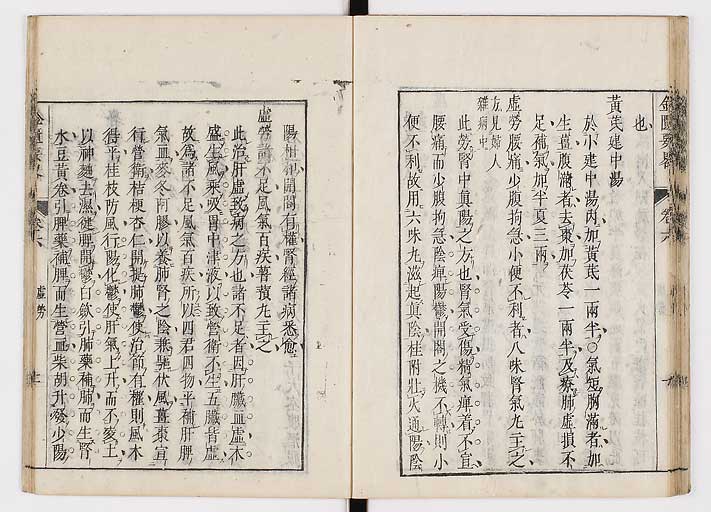 也
黃芪建中湯
於小建中湯內加黃芪一兩半○氣短胸滿者加
生薑腹滿者去棗加茯苓一兩半及療肺虛損不
足補氣加半夏三兩
虛勞腰痛少腹拘急小便不利者八味腎氣丸主之
方見婦人
雜病中
此勞腎中真陽之方也腎氣受傷精氣痺着不宣
腰痛而少腹拘急陰痺陽鬱開闔之機不轉則小
便不利故用六味丸滋起真陰桂附壯火通陽陰
卷六
陽 開闔有權腎經諸病悉愈
虛勞諸不足風氣百疾薯蕷丸主之
此治肝虛致病之方也諸不足者因肝臟血虛木
盛生風乘吸胃中津液以致營衛不生五臟皆虛
故爲諸不足風氣百疾所以四君四物平補肝脾
氣血麥冬阿膠以養肺腎之陰
行營衛桔梗杏仁開提肺鬱使治節有權則風木
得平桂枝防風行陽化鬱使肝氣上升而不
以神麯去濕健脾開鬱白歛引肺藥補肺而生腎
水豆黃卷引脾藥補脾而生營血柴胡升發少陽
卷六
虛勞